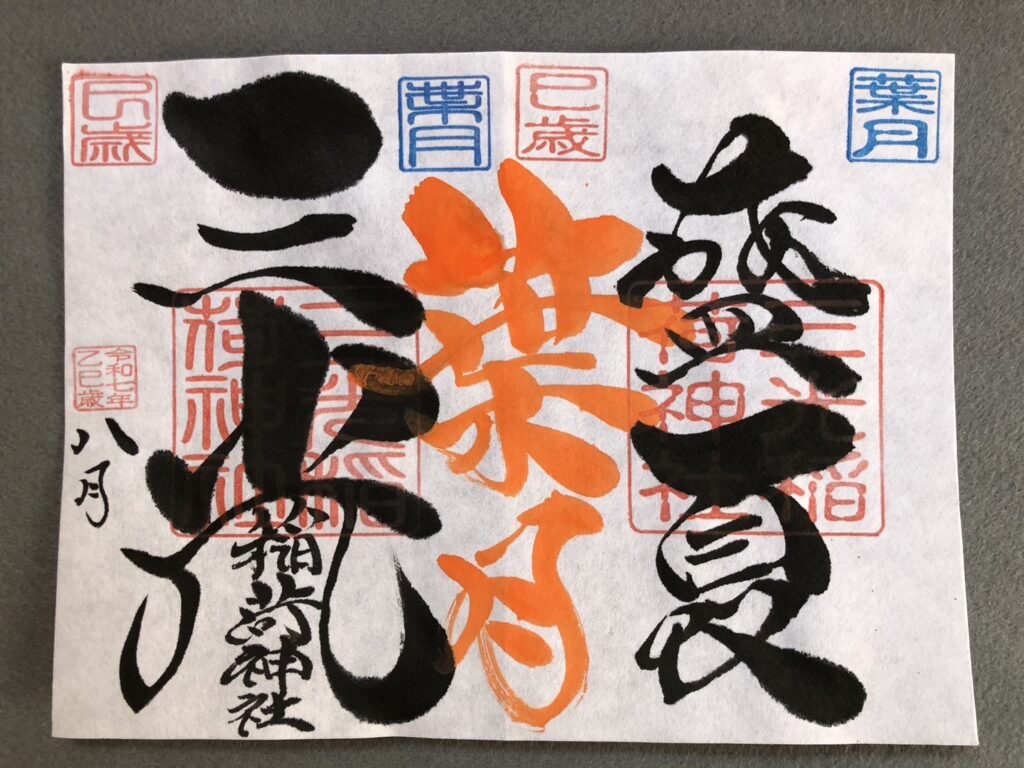 葉月
盛夏
三光稲荷神社
巳歳
葉月
葉月
三光
稲荷神社
三光稲荷神社
巳歳
令和七年
乙巳歳
八月